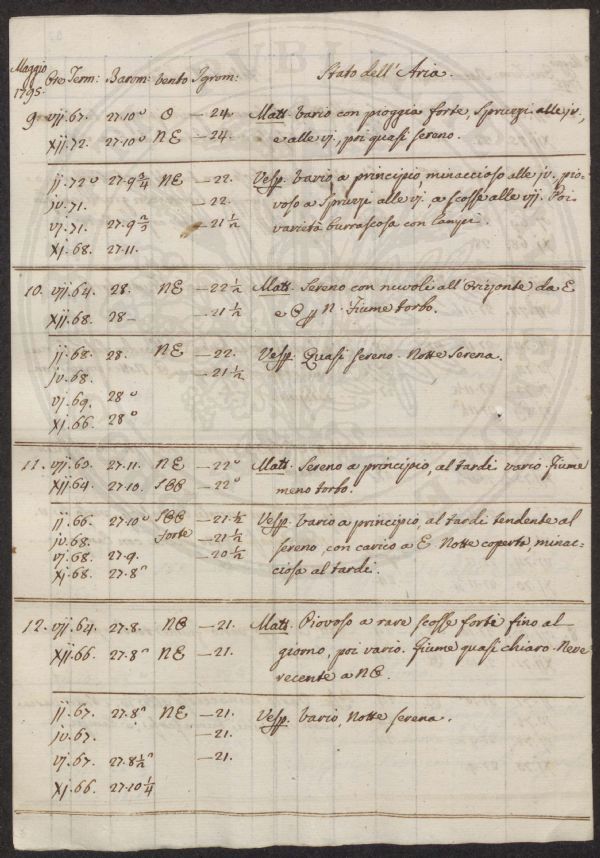 Maggio
1795. Ore Term: Barom: vento Igrom: Stato dell'Aria.
9 vij.67. 27.10 O —24. Matt. Vario con pioggia forte, Spruzzi alle jv,
xij.72. 27.10 NE —24. e alle vj., poi quasi sereno.
ij.72 27.9 3/4 NE —22. Vesp. Vario a principio, minaccioso alle jv. pio-
jv.71. —22. voso a Spruzzi alle vj. a scosse alle vij. Poi
vj.71. 27.9 —21 1/2 varietà burrascosa con lampi.
xj.68. 27.11.
10. vij.64. 28. NE —22 1/2 Matt. Sereno con nuvoli all'Orizonte da E
xij.68. 28— —21 1/2 e O N. Fiume torbo.
ij.68. 28. NE —22. Vesp. Quasi sereno. Notte serena.
jv.68. —21 1/2
vj.69. 28
xj.66. 28
11. vij.60. 27.11. NE —22 Matt. Sereno a principio, al tardi vario. Fiume
xij.64. 27.10. —22 meno torbo.
ij.66. 27.10 —21 1/2 Vesp. Vario a principio, al tardi tendente al
jv.68. forte —21 1/2 sereno, con carico a E. Notte coperta, minac-
vj.68. 27.9. —20 1/2 ciosa al tardi.
xj.68. 27.8
12. vij.64. 27.8. NO —21. Matt. Piovoso a rare scosse forti fino al
xij.66. 27.8 NE —21. giorno, poi vario. Fiume quasi chiaro. Neve
recente a NO.
ij.67. 27.8 NE —21. Vesp. Vario, Notte serena.
jv.67. —21.
vj.67. 27.8 1/2 —21.
xj.66. 27.10 1/4